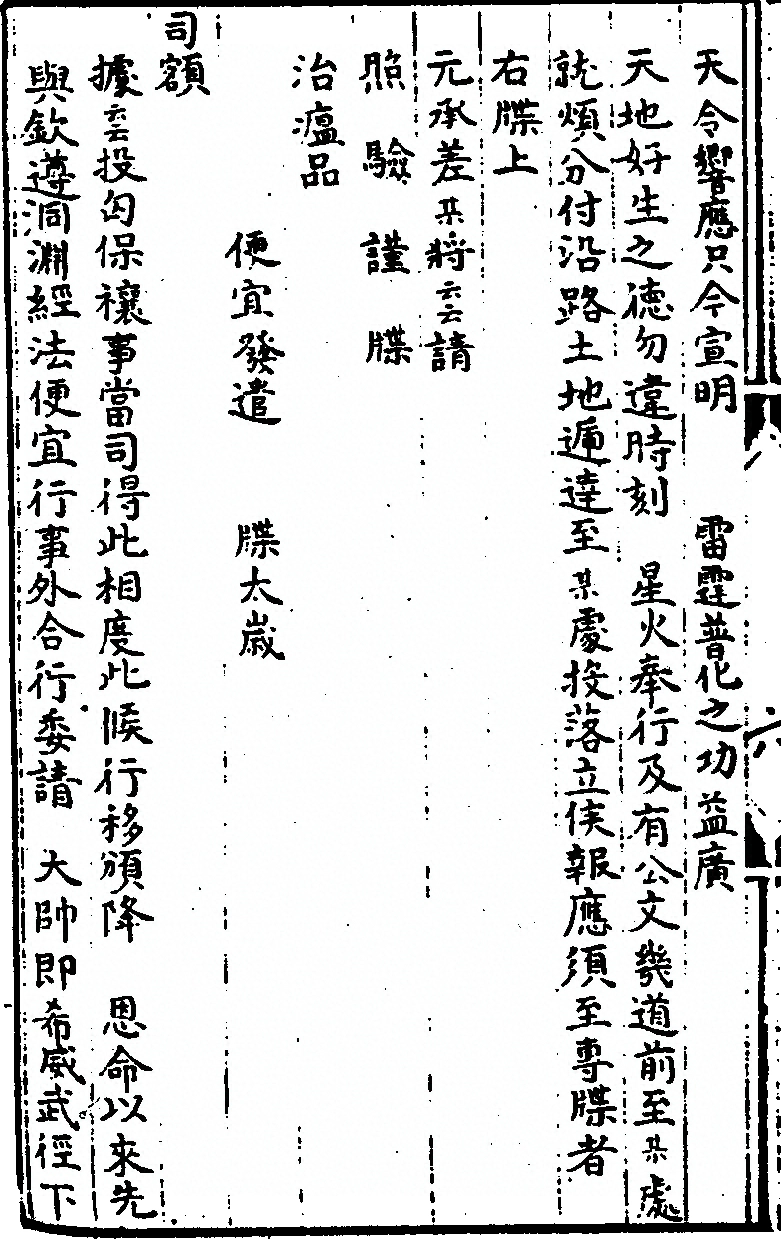 天令響應只今宣明　雷霆普化之功益廣
天地好生之德勿違時刻　星火奉行及有公文幾道前至某處
就煩分付沿路土地遞達至某處投落立俟報應須至專牒者
右牒上
元承差某將云云請
照驗謹牒
治瘟品
便宜發遣　牒太歲
司額
據云云投匃保禳事當司得此相度此候行移頒降　恩命以來先
與欽遵洞淵經法便宜行事外合行委請　大帥即希威武徑下
六